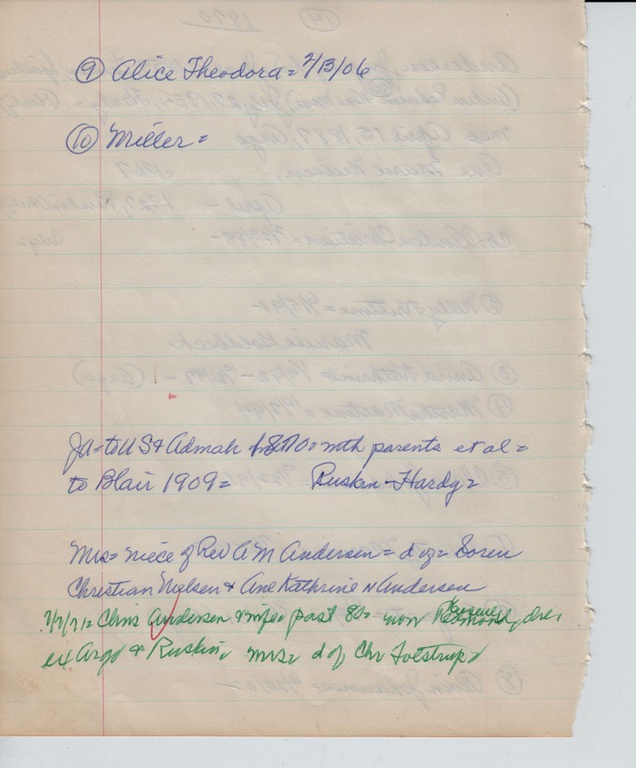 ⑨ Alice Theodora = 7/13/06
⑩ Miller =
to US & Admah 1870 = with parents et al =
to Blair 1909 = Ruskin - Hardy =
Mrs = niece of Rev A M Andersen = d of = Soren
Christian Nielsen & Ane Kathrine N Andersen
7/7/71 = Chris Andersen & wife past 80 = now Redmond, Ore,
ex Argo & Ruskin, mrs = d of Chr Tolstrup =